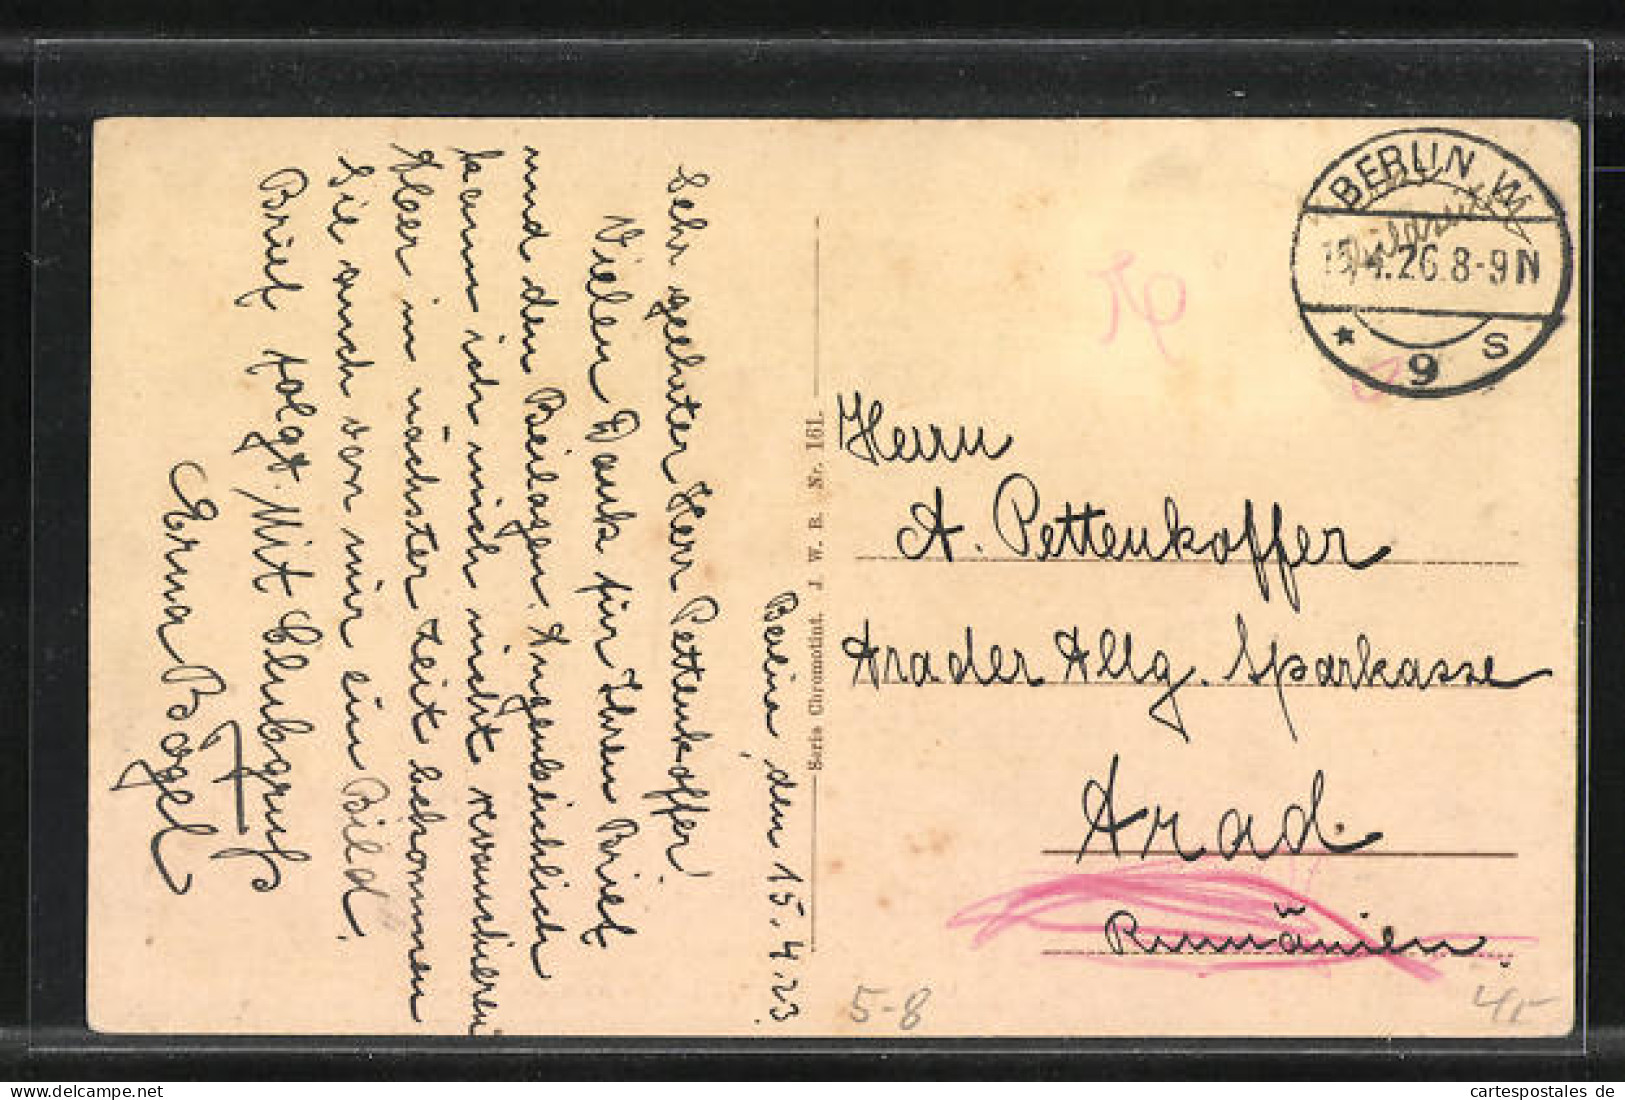 Berlin, den 15.4.23
Sehr geehrter Herr Pettenkoffer!
Vielen Dank für Ihren Brief
und den Beilagen. Augenblicklich
kann ich mich nicht revanchieren
Aber in nächster Zeit bekommen
Sie auch von mir ein Bild.
Brief folgt. Mit Clubgruß
Erna Bogel
Serie Chromotint. J. W. B. Nr. 161.
BERLIN W
15.4.26.8-9N
* 9 s
Herrn
A. Pettenkoffer
Arader Allg. Sparkasse
Arad.
Rumänien.
5-8
cartespostales de